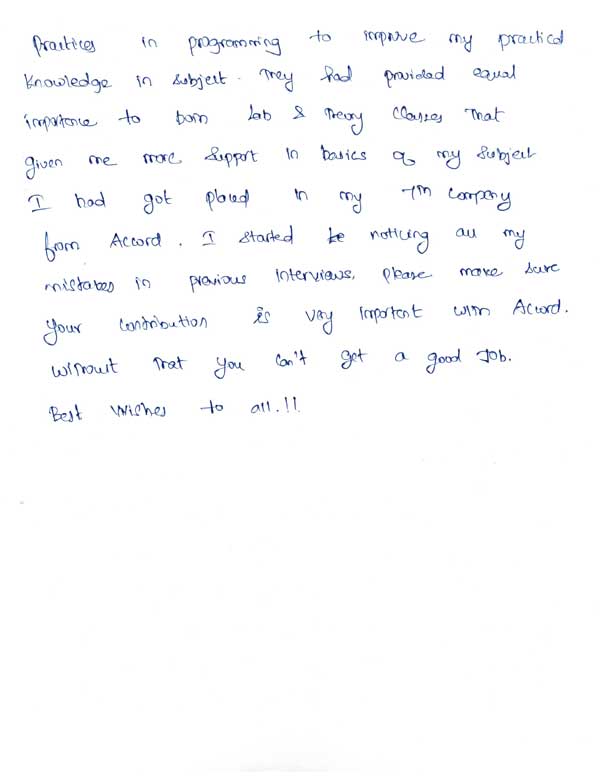 Practices in programming to improve my practical
knowledge in subject. They had provided equal
importence to both Lab & Theory Classes That
given me more support in basics of my subject
I had got placed in my 7th Company
from Accord. I started noticing all my
mistakes in previous interviews, please make sure
your contribution is very important with Accord.
Without that you can't get a good Job.
Best Wishes to all.!!